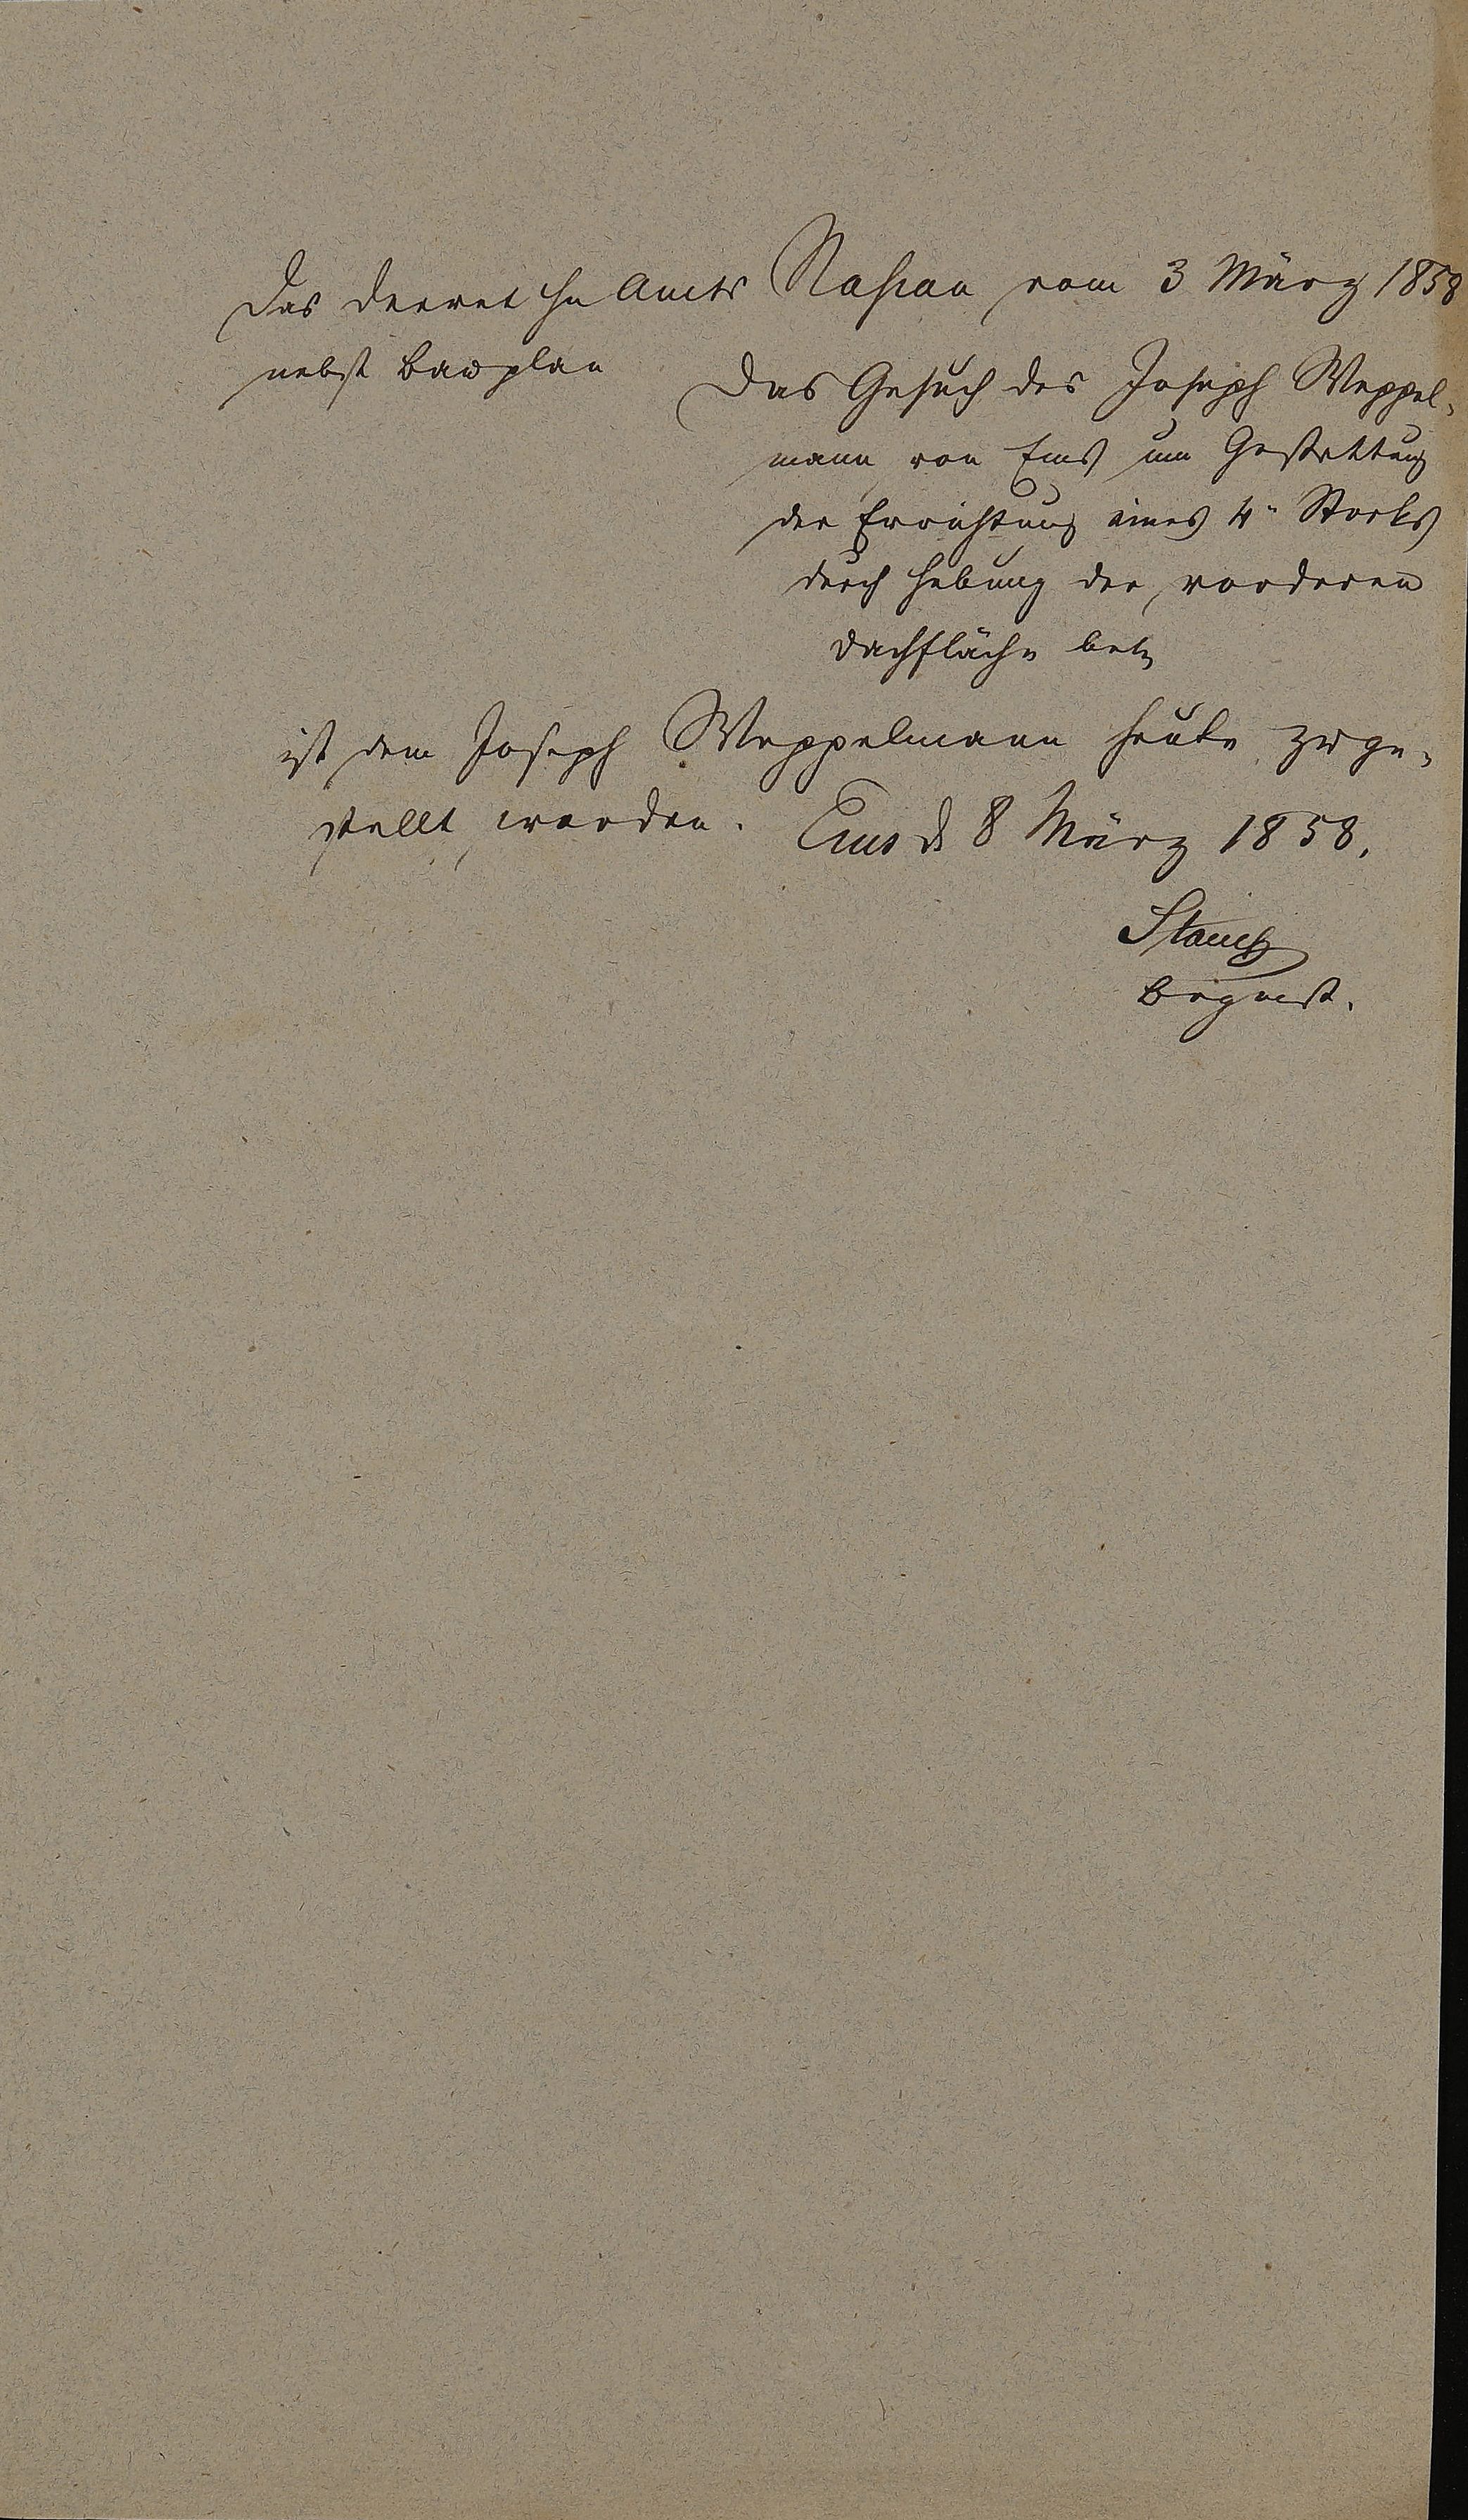 Das Decret Hz Amts Nassau vom 3 März 1858
nebst Bauplan
Das Gesuch des Joseph Weppel-
mann von Ems um Gestattung
der Errichtung eines 4n Stocks
durch Hebung der vorderen
Dachfläche betr
ist dem Joseph Weppelmann heute zuge-
stellt worden.
Ems d 8 März 1858.